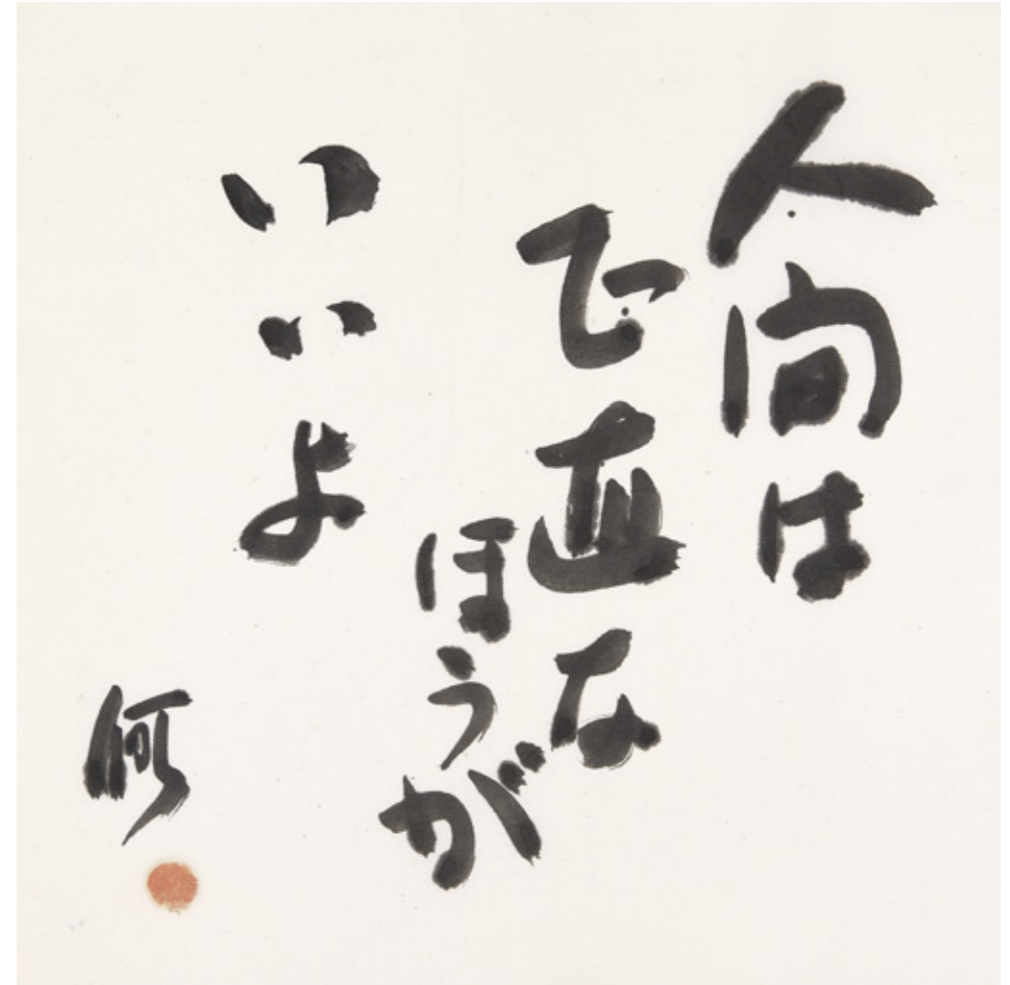 人間は
正直な
ほうが
いいよ
何